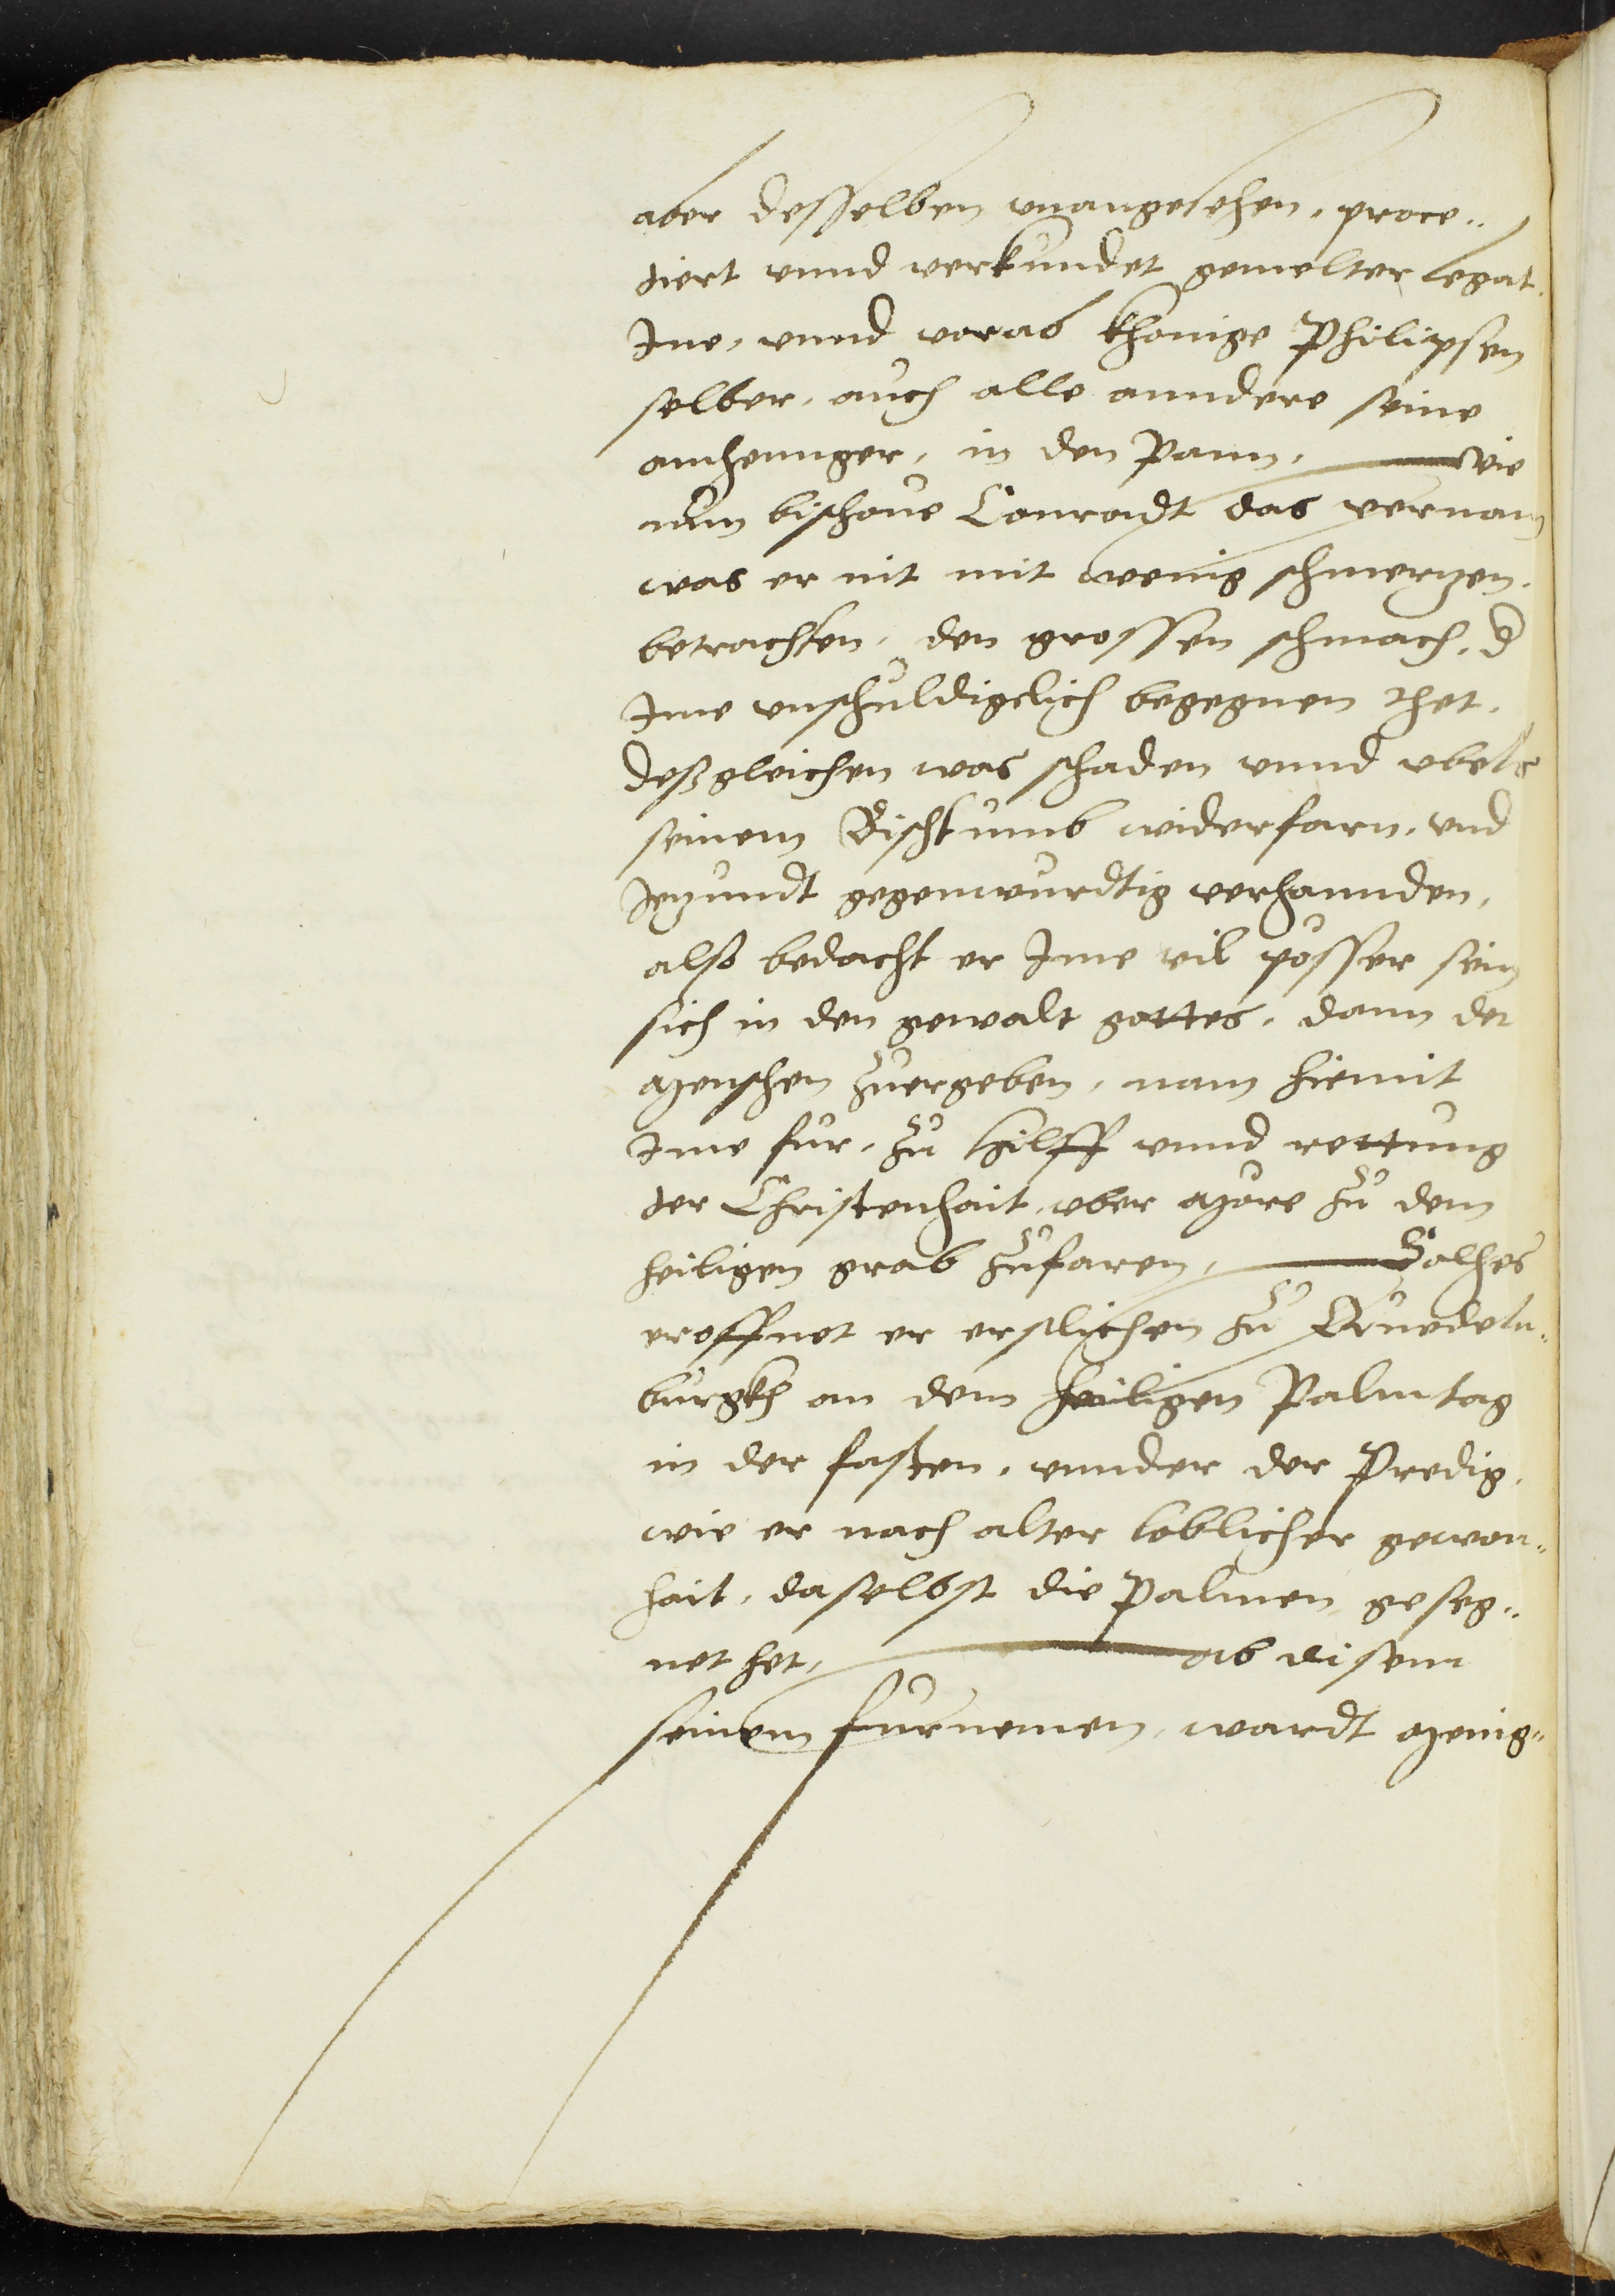 aber desselben unangesehen, proce¬
diert unnd verkundet gemelter Legat.
Ine, unnd vorab Khonige Philipsen
selber, auch alle anndere seine
anhennger, in den Pann, Wie
nun bischove Conradt das vernam
was er nit mit wenig schmertzen.
betrachten, den grossen schmach, d
Ime unschuldigelich begegnen thet.
deßgleichen was schaden unnd ubels
seinem Bischtumb widerfarn, und
Jetzundt gegenwurdtig verhannden,
also bedacht er Ime vil pösser sein
sich in den gewalt gottes, dann der
menschen zuergeben, nam hiemit
Ime für, zu hilff unnd rettung
der Christenhait, uber möre zu dem
heiligen grab zufaren, Solhes
eroffnet er erstlichen zu Quedeln¬
burgkh an dem heiligen Palmtag
in der fasten, unnder der Predig,
wie er nach alter loblicher gewon¬
hait, daselbst die Palmen geseg¬
net het, ab disem
seinem fürnemen, wardt menig¬